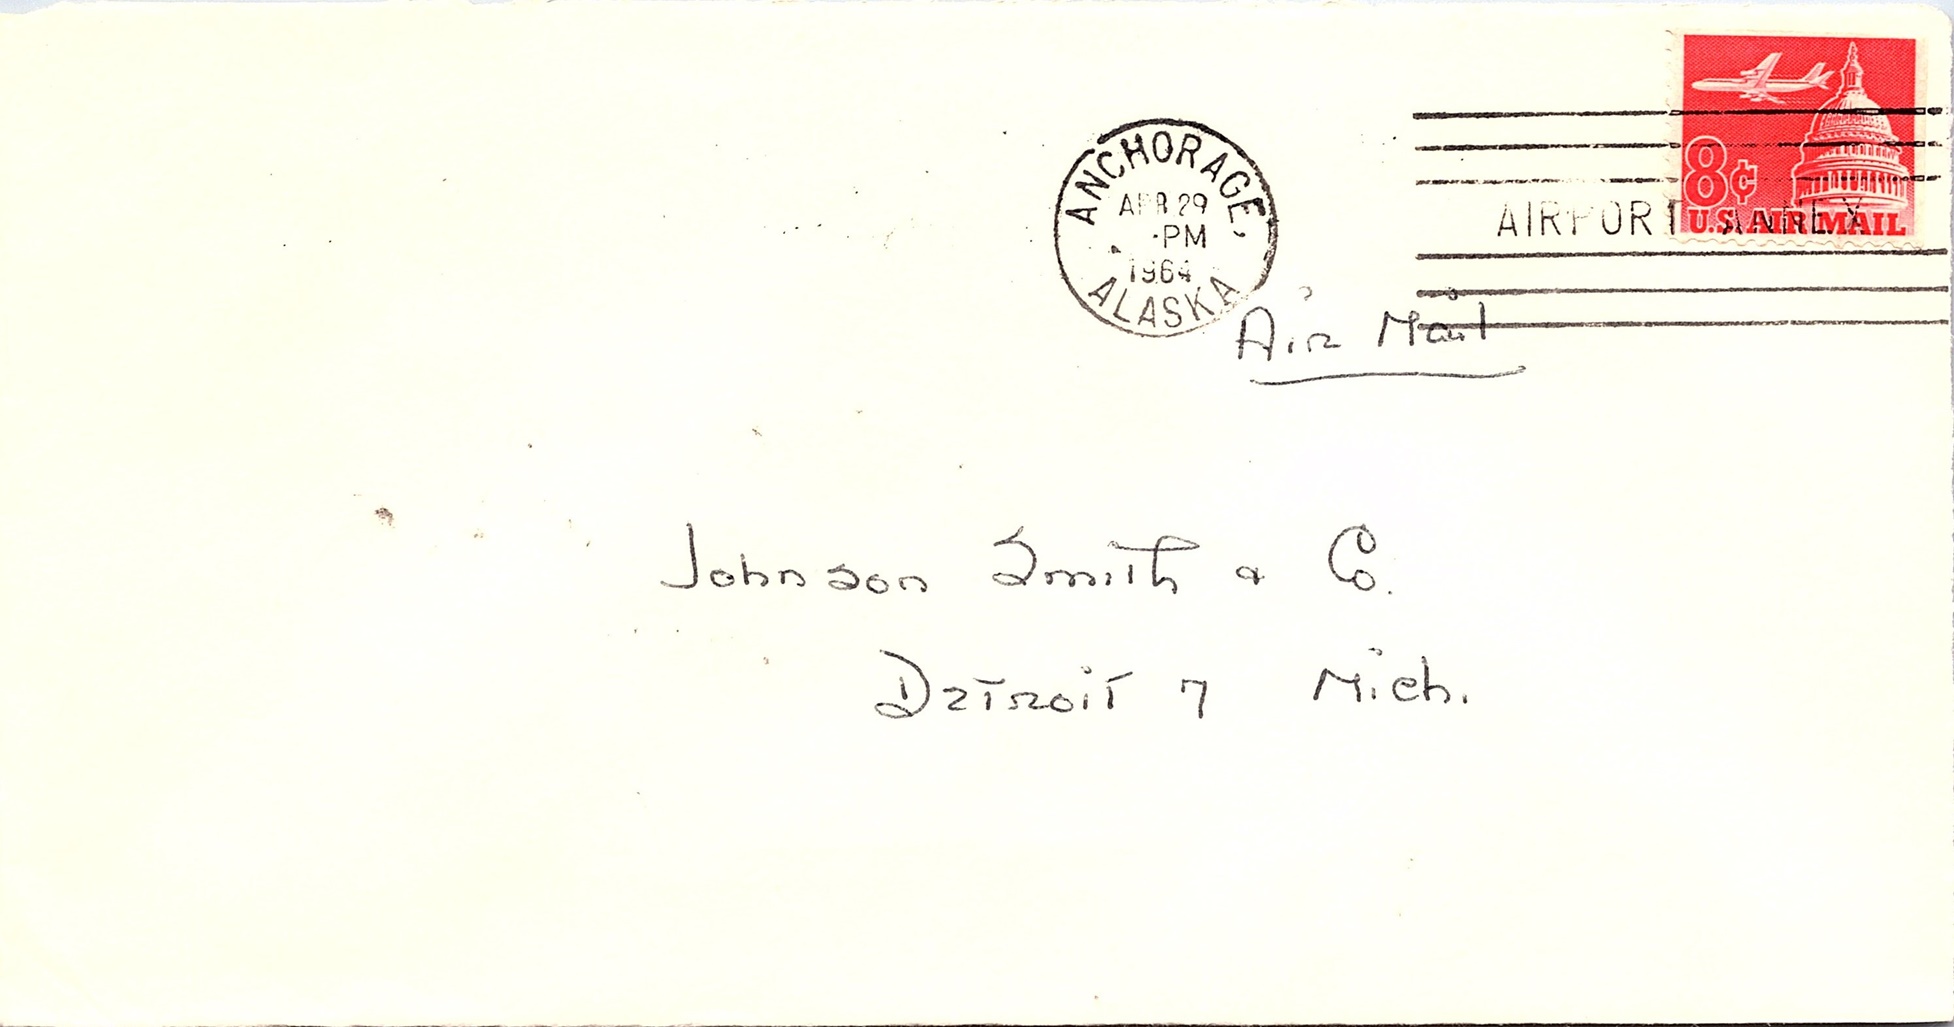 ANCHORAGE,
APR 29
PM
1964
ALASKA
8¢
U.S. AIR MAIL
AIRPORT ANNEX
Air Mail
Johnson Smith & Co.
Detroit 7 Mich.